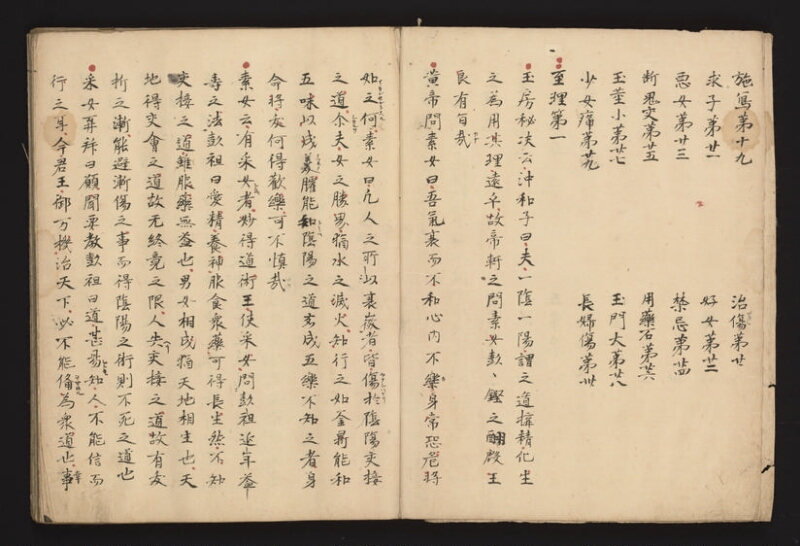 施寫第十九　治傷第廿
求子第廿一　好女第廿二
惡女第廿三　禁忌第廿四
断鬼交第廿五　用藥石第廿六
玉莖小第廿七　玉門大第廿八
少女痛第廿九　長婦傷第卅
至理第一
玉房秘决云沖和子曰夫一陰一陽謂之道搆精化生
之為用其理遠乎故帝軒之問素女彭〻鏗之酬殷王
良有旨哉
黄帝問素女曰吾氣衰而不和心内不樂身常恐危将
如之何素女曰凡人之所以衰㣲者皆傷於陰陽交接
之道尒夫女之勝男猶水之滅火知行之如釜鼎能和
五味以成羹臛能知陰陽之道者成五樂不知之者身
命将夭何得歡樂可不慎哉
素女云有采女者妙得道術王使采女問彭祖延年益
壽之法彭祖曰愛精養神服食衆藥可得長生然不知
交接之道雖服藥无益也男女相成猶天地相生也天
地得交會之道故无終竟之限人失交接之道故有夭
折之漸能避漸傷之事而得陰陽之術則不死之道也
采女再拜曰願聞要教彭祖曰道甚易知人不能信而
行之耳今君王御万機治天下必不能備為衆道也事